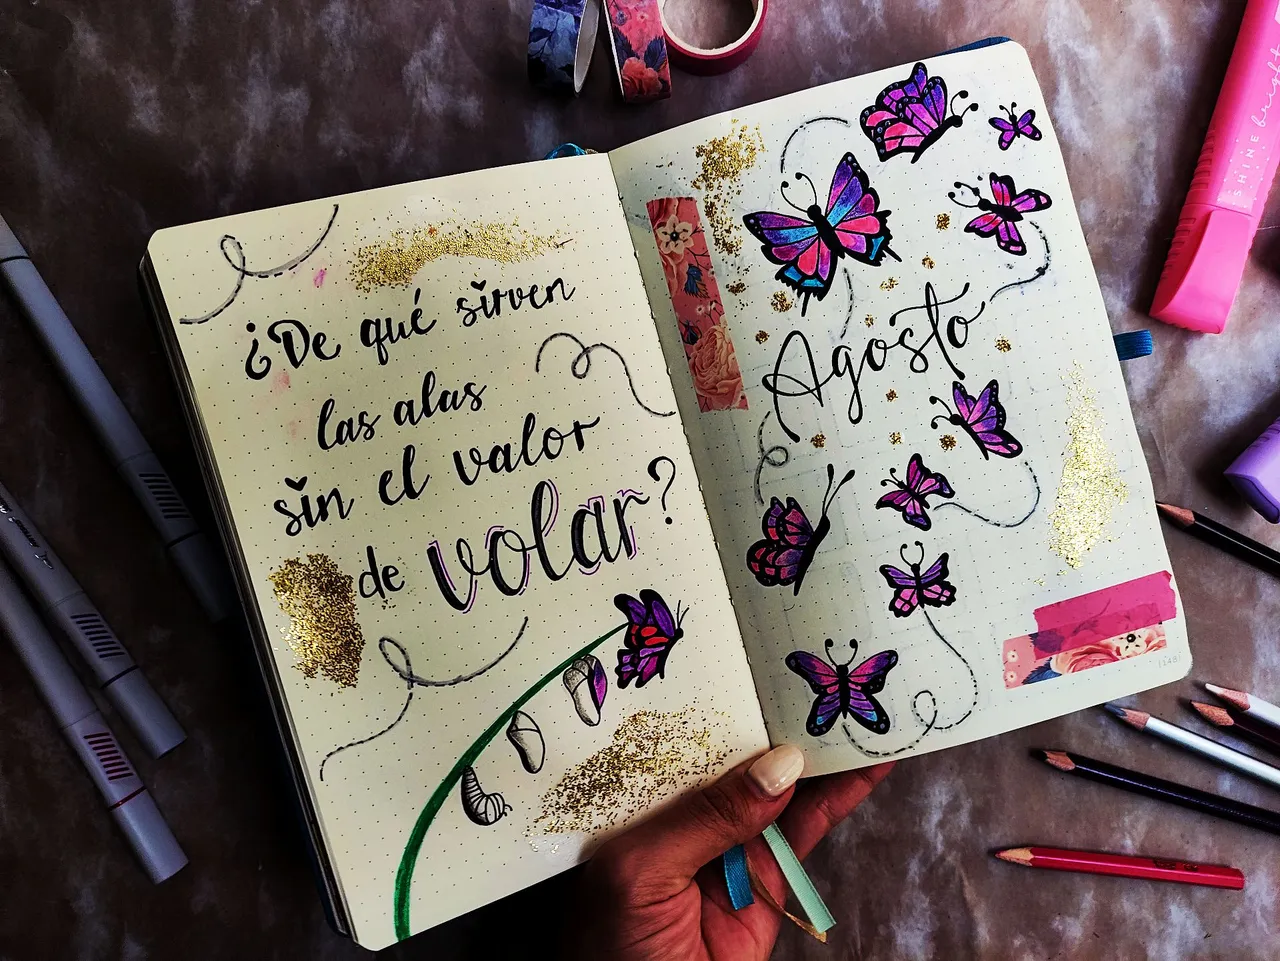 ¿De qué sirven
las alas
sin el valor
de volar?
Agosto
SHINE bright